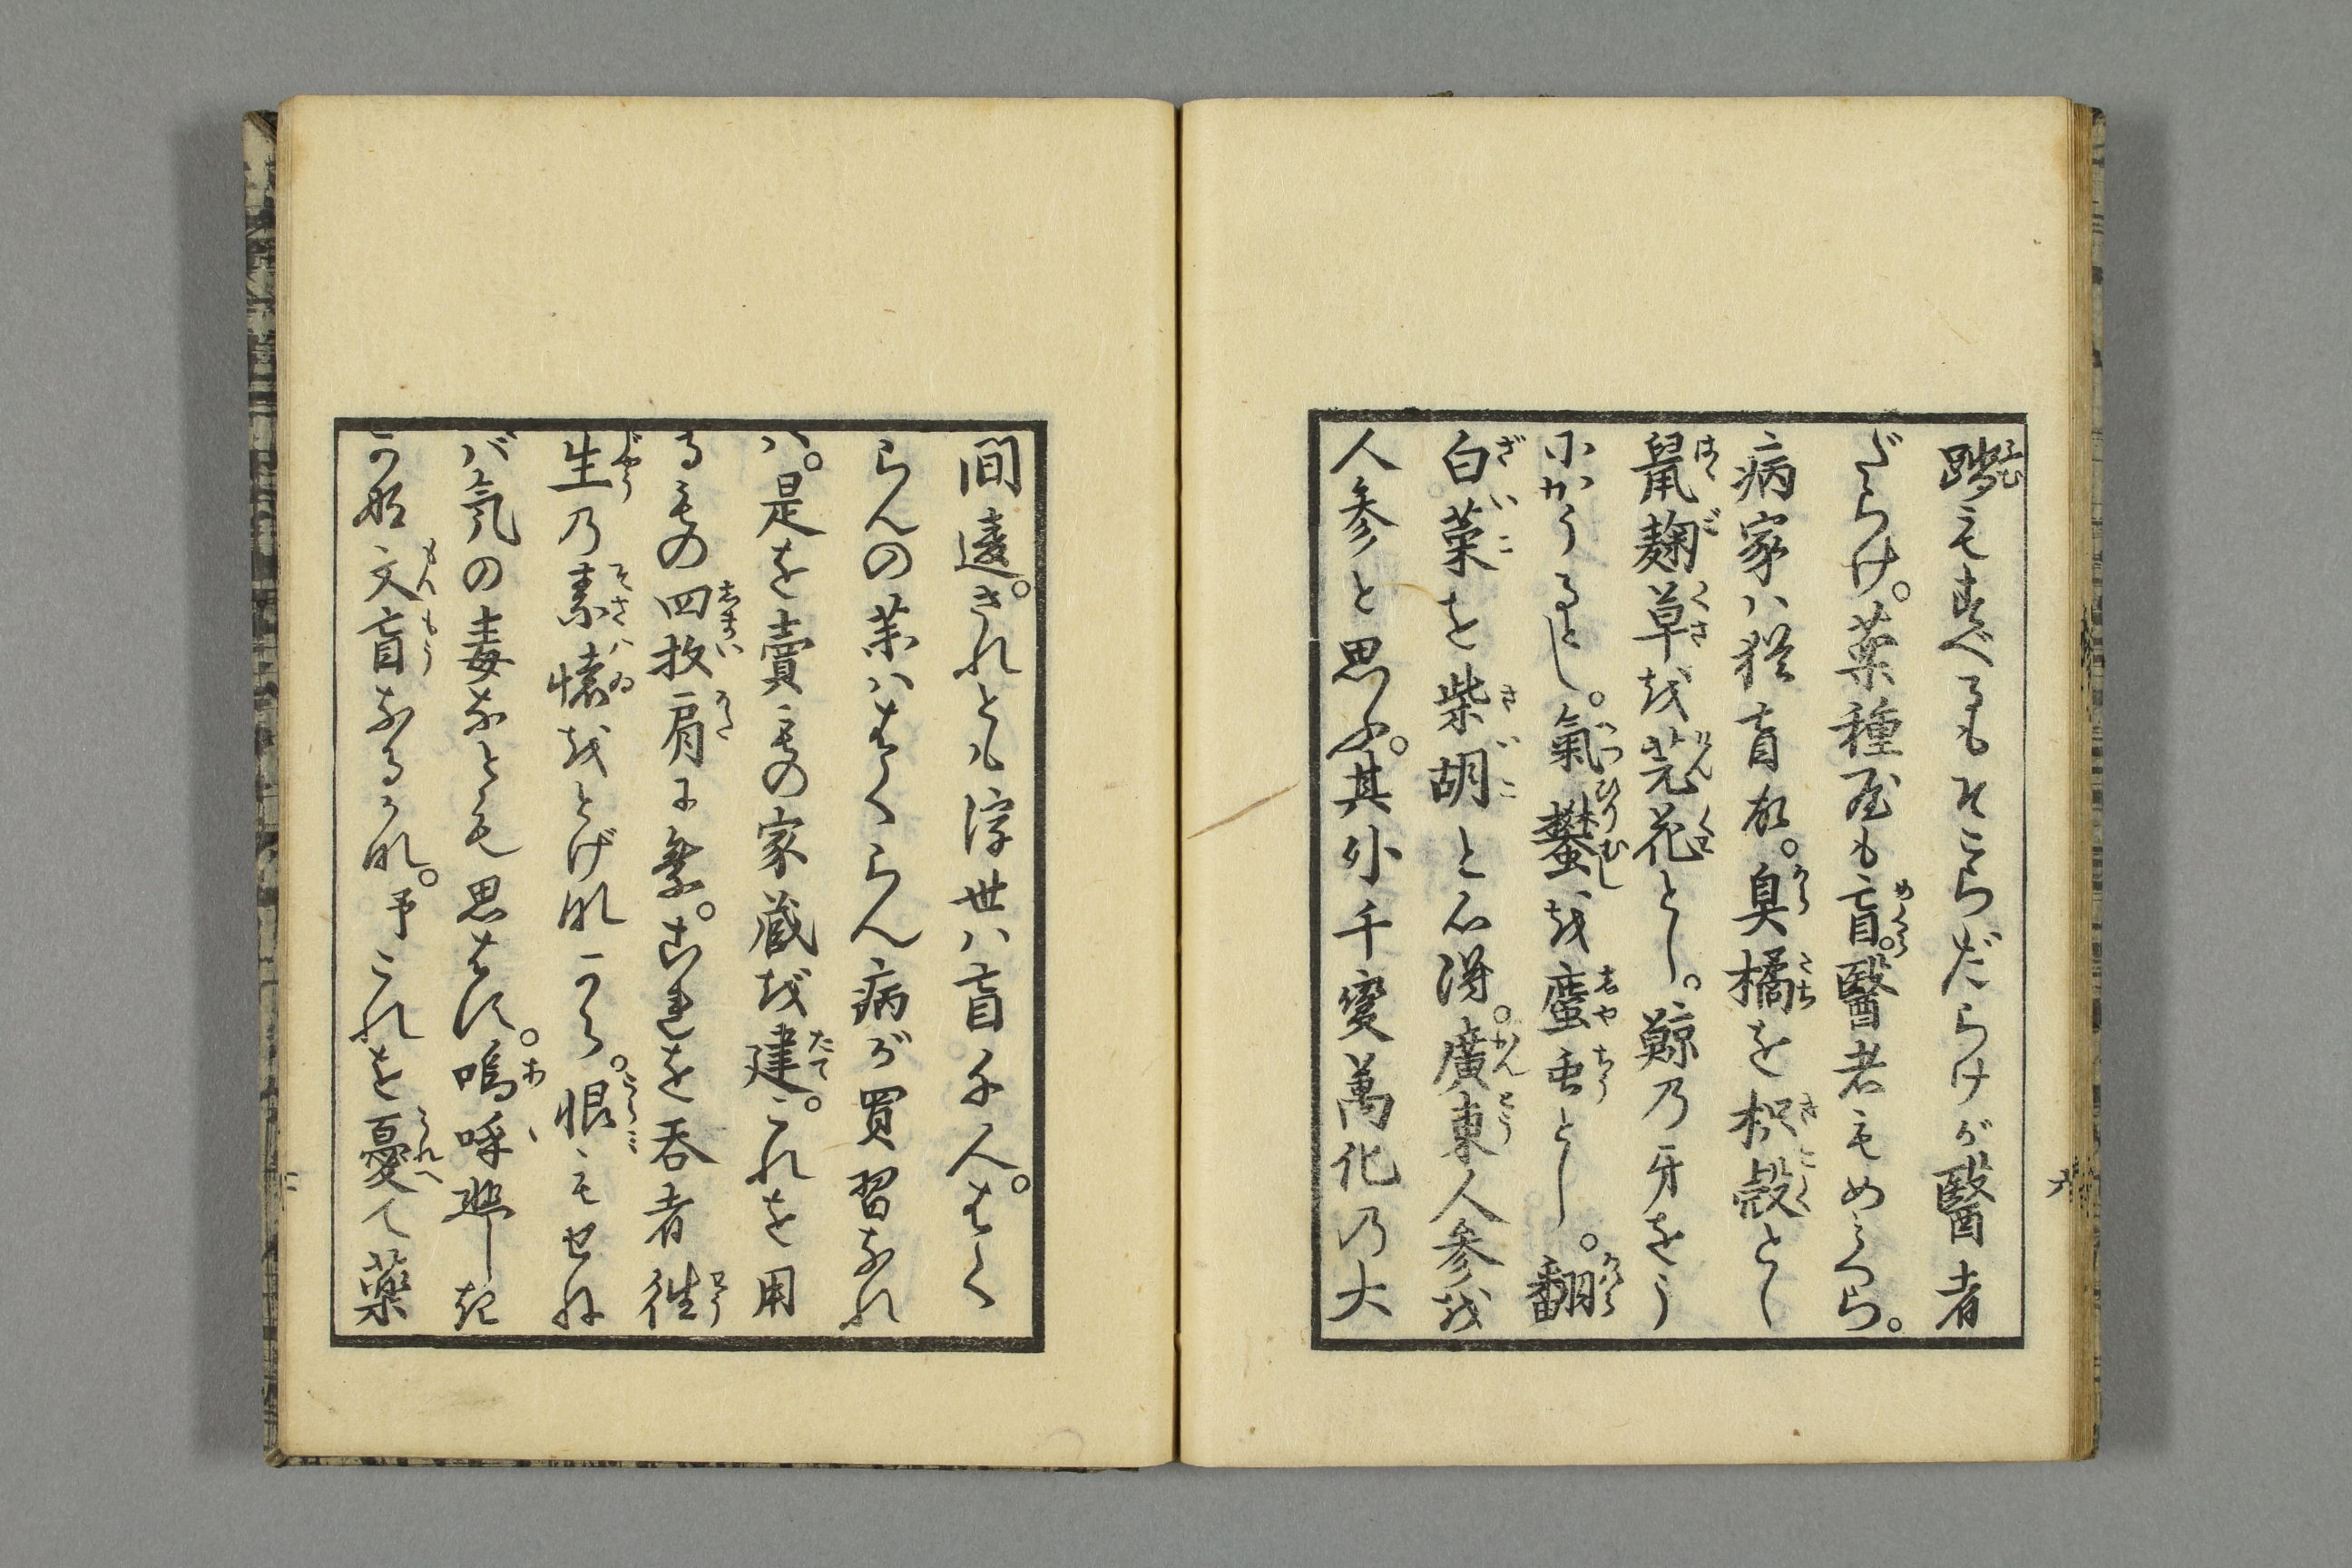 踏もすべるもそこらだらけが醫者
だらけ。薬種屋も盲。醫者もめくら。
病家ハ猶盲故。臭橘を枳殻とし
鼠麹草を芫花とし。鯨乃牙をう
にかうるとし。氣䗫を䗪虫とし。翻
白菜を柴胡と心得。廣東人参を
人参と思ふ。其外千變萬化乃大
間違。されとも浮世ハ盲千人。はく
らんの薬ハはくらん病が買習なれ
バ。是を賣もの家蔵を建。これを用
るもの四枚肩に乗。これを呑者往
生乃素懐をとげなから。恨もせね
バ氣の毒なとも思はず。嗚呼悲しき
かな文盲なるかな。予これを憂て薬